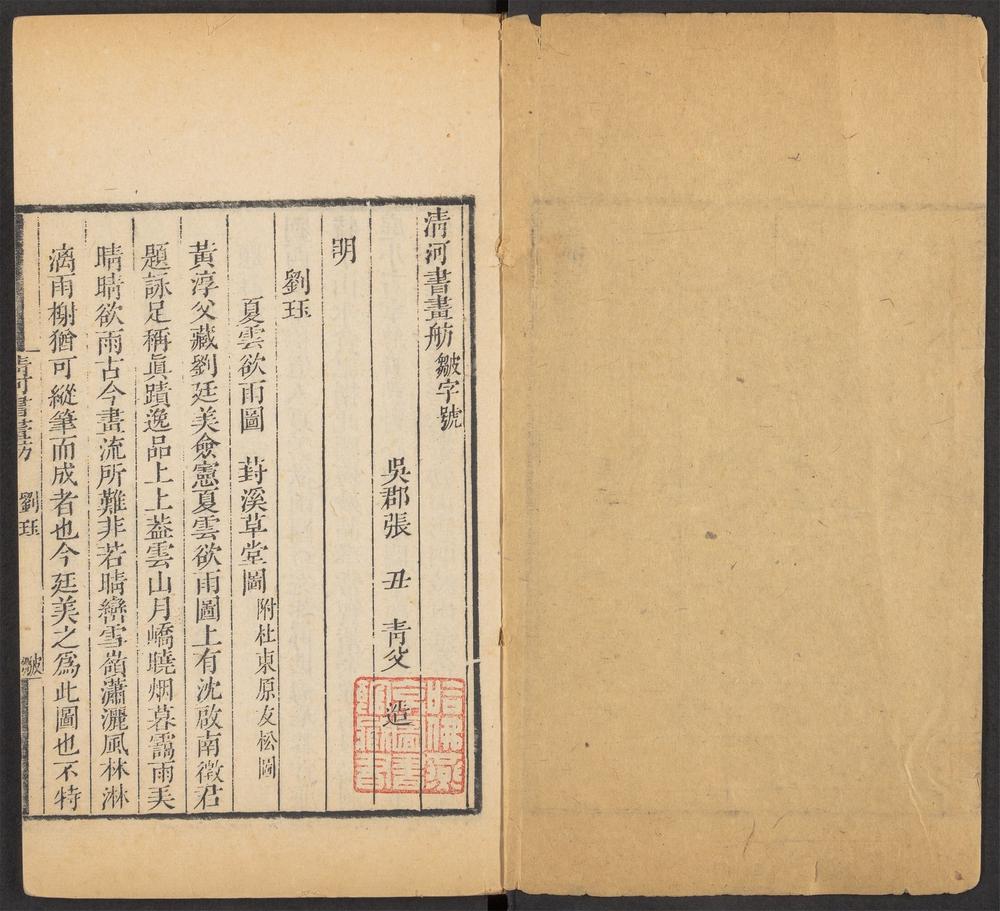 清河書畫舫皺字號
吳郡張 丑 青父 造
明
劉珏
夏雲欲雨圖 葑溪草堂圖附杜東原友松圖
黃淳父藏劉廷美僉憲夏雲欲雨圖上有沈啟南徵君
題詠足稱眞蹟逸品上上葢雲山月嶠曉烟暮靄雨美
晴晴欲雨古今畫流所難非若晴巒雪嶺瀟灑風林淋
漓雨榭猶可縱筆而成者也今廷美之爲此圖也不特
清河書畫舫 劉珏 皺